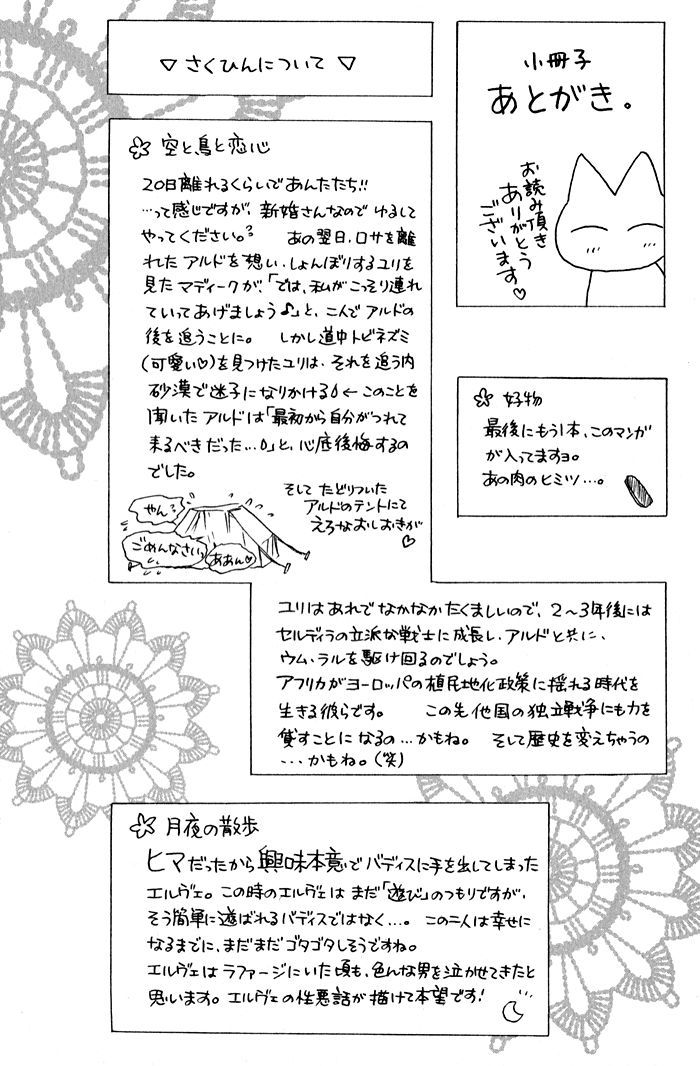 小冊子
あとがき。
お読み頂き
ありがとう
ございます♡
▽ さくひんについて ▽
空と鳥と恋心
20日離れるくらいであんたたち!!
…って感じですが、新婚さんなので ゆるして
やってください。 あの翌日、ロサを離
れたアルドを想い、しょんぼりするユリを
見たマディークが、「では、私がこっそり連れ
ていってあげましょう♪」と、二人でアルドの
後を追うことに。 しかし道中トビネズミ
(可愛い♡)を見つけたユリは、それを追う内
砂漠で迷子になりかける ← このことを
聞いたアルドは「最初から自分がつれて
来るべきだった…」と、心底後悔するの
でした。
そして たどりついた
アルドのテントにて
えろなおしおきが
♡
やん?
ごめんなさい
ああん♡
好物
最後にもう1本、このマンガ
が入ってますヨ。
あの肉のヒミツ…。
ユリはあれでなかなかたくましいので、2〜3年後には
セルディラの立派な戦士に成長し、アルドと共に、
ウム・ラルを駆け回るのでしょう。
アフリカがヨーロッパの植民地化政策に揺れる時代を
生きる彼らです。 この先他国の独立戦争にも力を
貸すことになるの…かもね。 そして歴史を変えちゃうの
…かもね。(笑)
月夜の散歩
ヒマだったから興味本意でバディスに手を出してしまった
エルヴェ。この時のエルヴェは まだ「遊び」のつもりですが、
そう簡単に遊ばれるバディスではなく…。 この二人は幸せに
なるまでに、まだまだゴタゴタしそうですね。
エルヴェはラファージにいた頃も、色んな男を泣かせてきたと
思います。エルヴェの性悪話が描けて本望です!